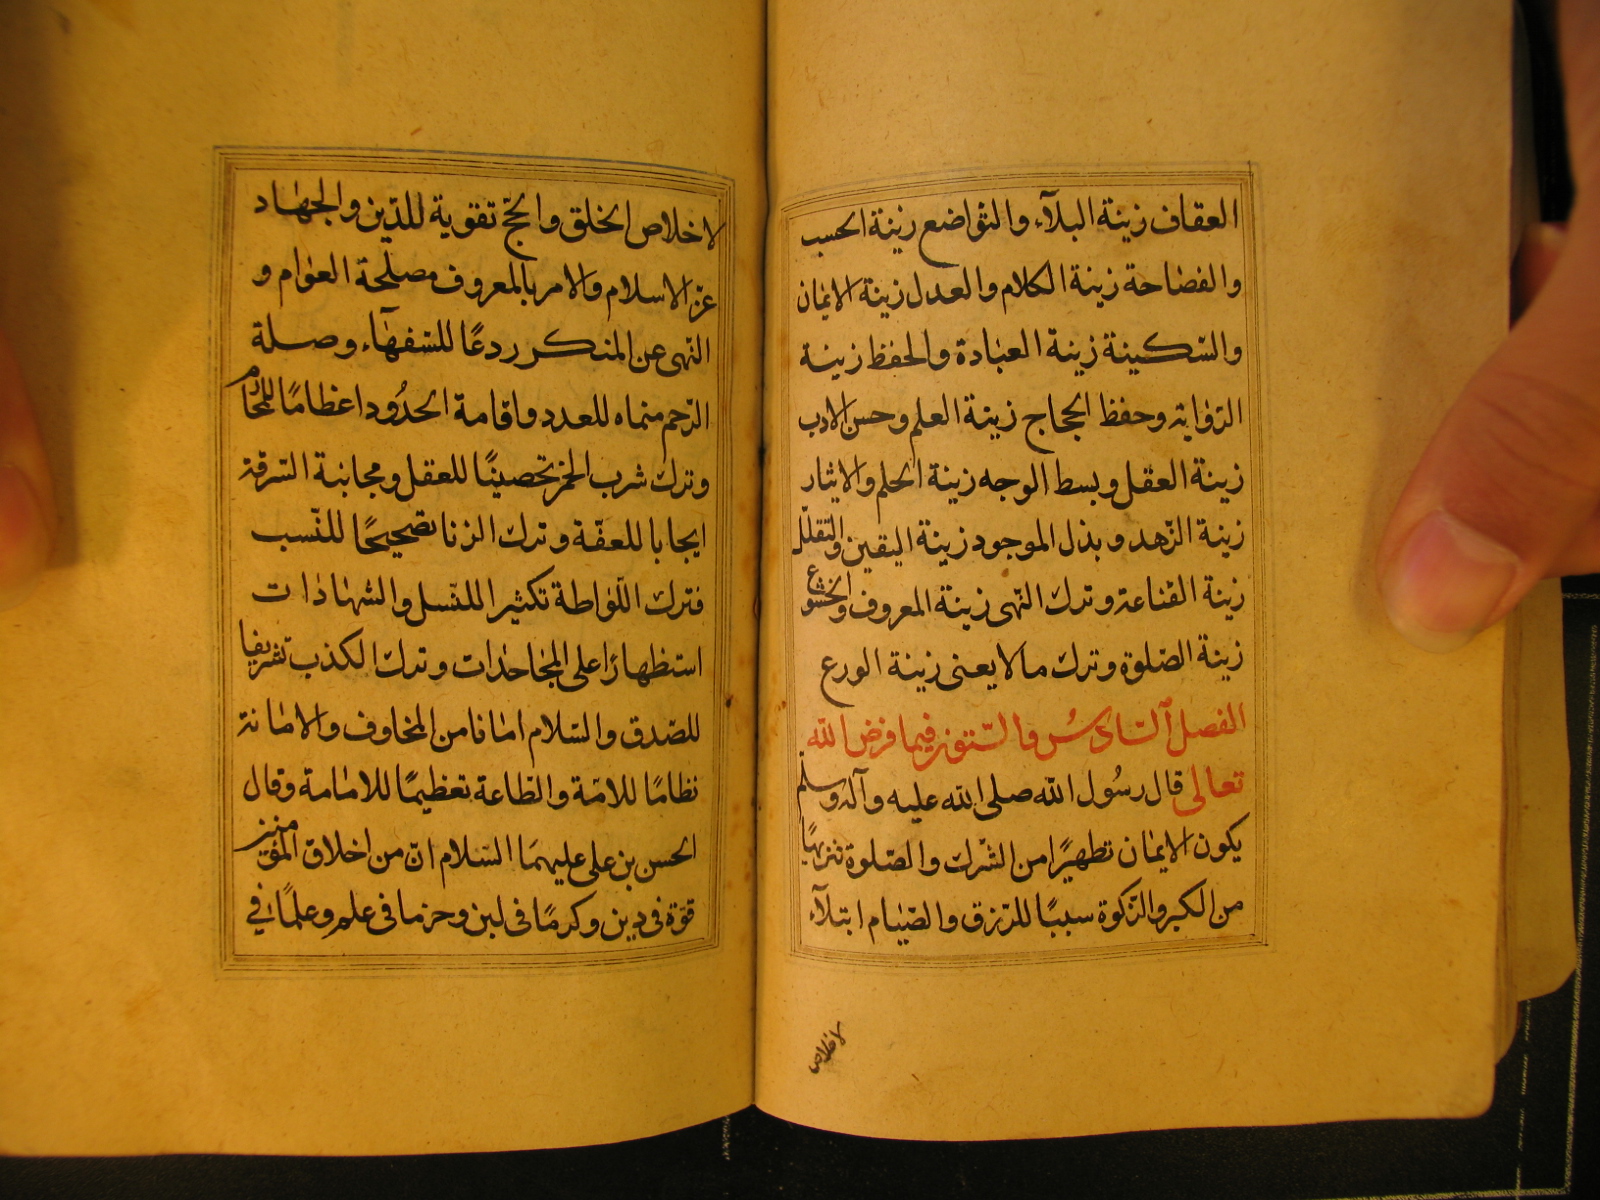 العفاف زينة البلآء والتواضع زينة الحسب
والفصاحة زينة الكلام والعدل زينة الايمان
والسّكينة زينة العبادة والحفظ زينة
الرّواية وحفظ الحجاج زينة العلم وحسن الادب
زينة العقل وبسط الوجه زينة الحلم والايثار
زينة الزّهد وبذل الموجود زينة اليقين والتقلّل
زينة القناعة وترك النّهى زينة المعروف والخشوع
زينة الصّلوة وترك ما لا يعنى زينة الورع
الفصل السّادس والسّتون فيما فرض الله
تعالى قال رسُول الله صلى الله عليه وآله وسلم
يكون الايمان تطهيرًا من الشّرك والصّلوة تنزيهًا
من الكبر والزّكوة سببًا للرّزق والصّيام ابتلآء
لاخلاص
لاخلاص الخلق والحجّ تقوية للدّين والجهاد
عزّ الاسلام والامر بالمعروف مصلحة العوام و
النّهى عن المنكر ردعًا للسّفهآء وصلة
الرّحم منماه للعدد واقامة الحدُود اعظامًا للمحارم
وترك شرب الخمر تحصينًا للعقل ومجانبة السّرقة
ايجابا للعفّة وترك الزنا تصحيحًا للنّسب
وترك اللّواطة تكثيرا للنّسل والشهادات
استظهارًا على المجاحدات وترك الكذب تشريفا
للصّدق والسّلام امانا من المخاوف والامانة
نظامًا للامّة والطّاعة تعظيمًا للامامة وقال
الحسن بن على عليهمَا السّلام انّ من اخلاق المؤمنين
قوّة فى دين وكرمًا فى لين وحزما فى علم وعلمًا فى